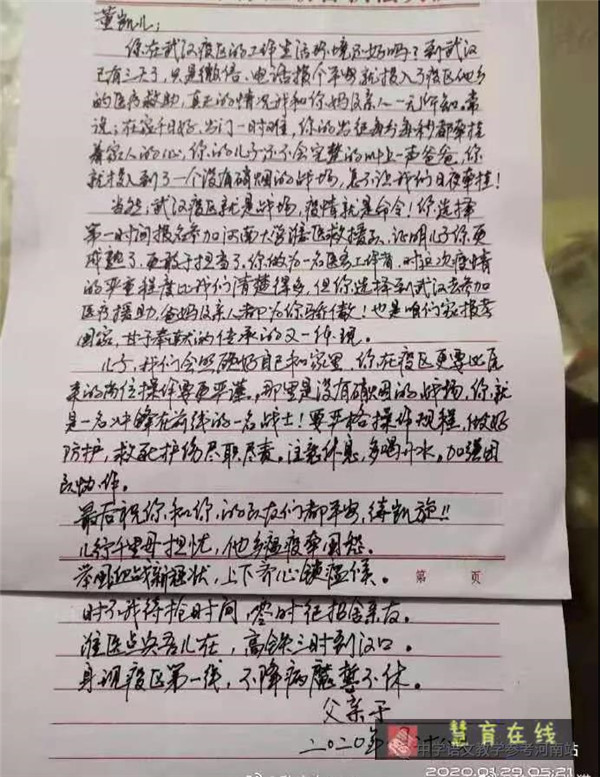 董凯儿:
你在武汉疫区的工作生活环境还好吗?到武汉
已有三天了,只是微信、电话报个平安就投入了疫区
的医疗救助,真正的情况我和你妈及亲人一无所知。常
说:在家千日好,出门一时难,你的出征每分每秒都牵挂
着家人的心,你的儿子还不会完整的叫上一声爸爸,你
就投入到了一个没有硝烟的战场,怎不让我们日夜牵挂!
当然,武汉疫区就是战场,疫情就是命令!你选择
第一时间报名参加河南大学淮医救援队,证明儿子你更
成熟了,更敢于担当了,你做为一名医务工作者,对这次疫情
的严重程度比我们清楚得多,但你选择到武汉去参加
医疗援助,爸妈及亲人都为你骄傲!也是咱们家报孝
国家,甘于奉献的传承的又一体现。
儿子,我们会照顾好自己和家里,你在疫区更要比原
来的岗位操作要更严谨。那里是没有硝烟的战场,你就
是一名冲锋在前线的一名战士!要严格操作规程,做好
防护,救死护伤尽职尽责。注意休息,多喝开水。加强团
队协作。
最后祝你和你的队友们都平安,待凯旋!!
儿行千里母担忧,他乡瘟疫牵国怨。
举国血战新冠状,上下齐心镇瘟倏。
时不我待抢时间,零时征招舍亲友。
淮医点兵吾儿在,高铁三时到汉口。
身现疫区第一线,不降病魔誓不休。
第 页
父亲于
二〇二〇年
慧育在线
中学语文教学参考河南站
2020.01.29 05:21